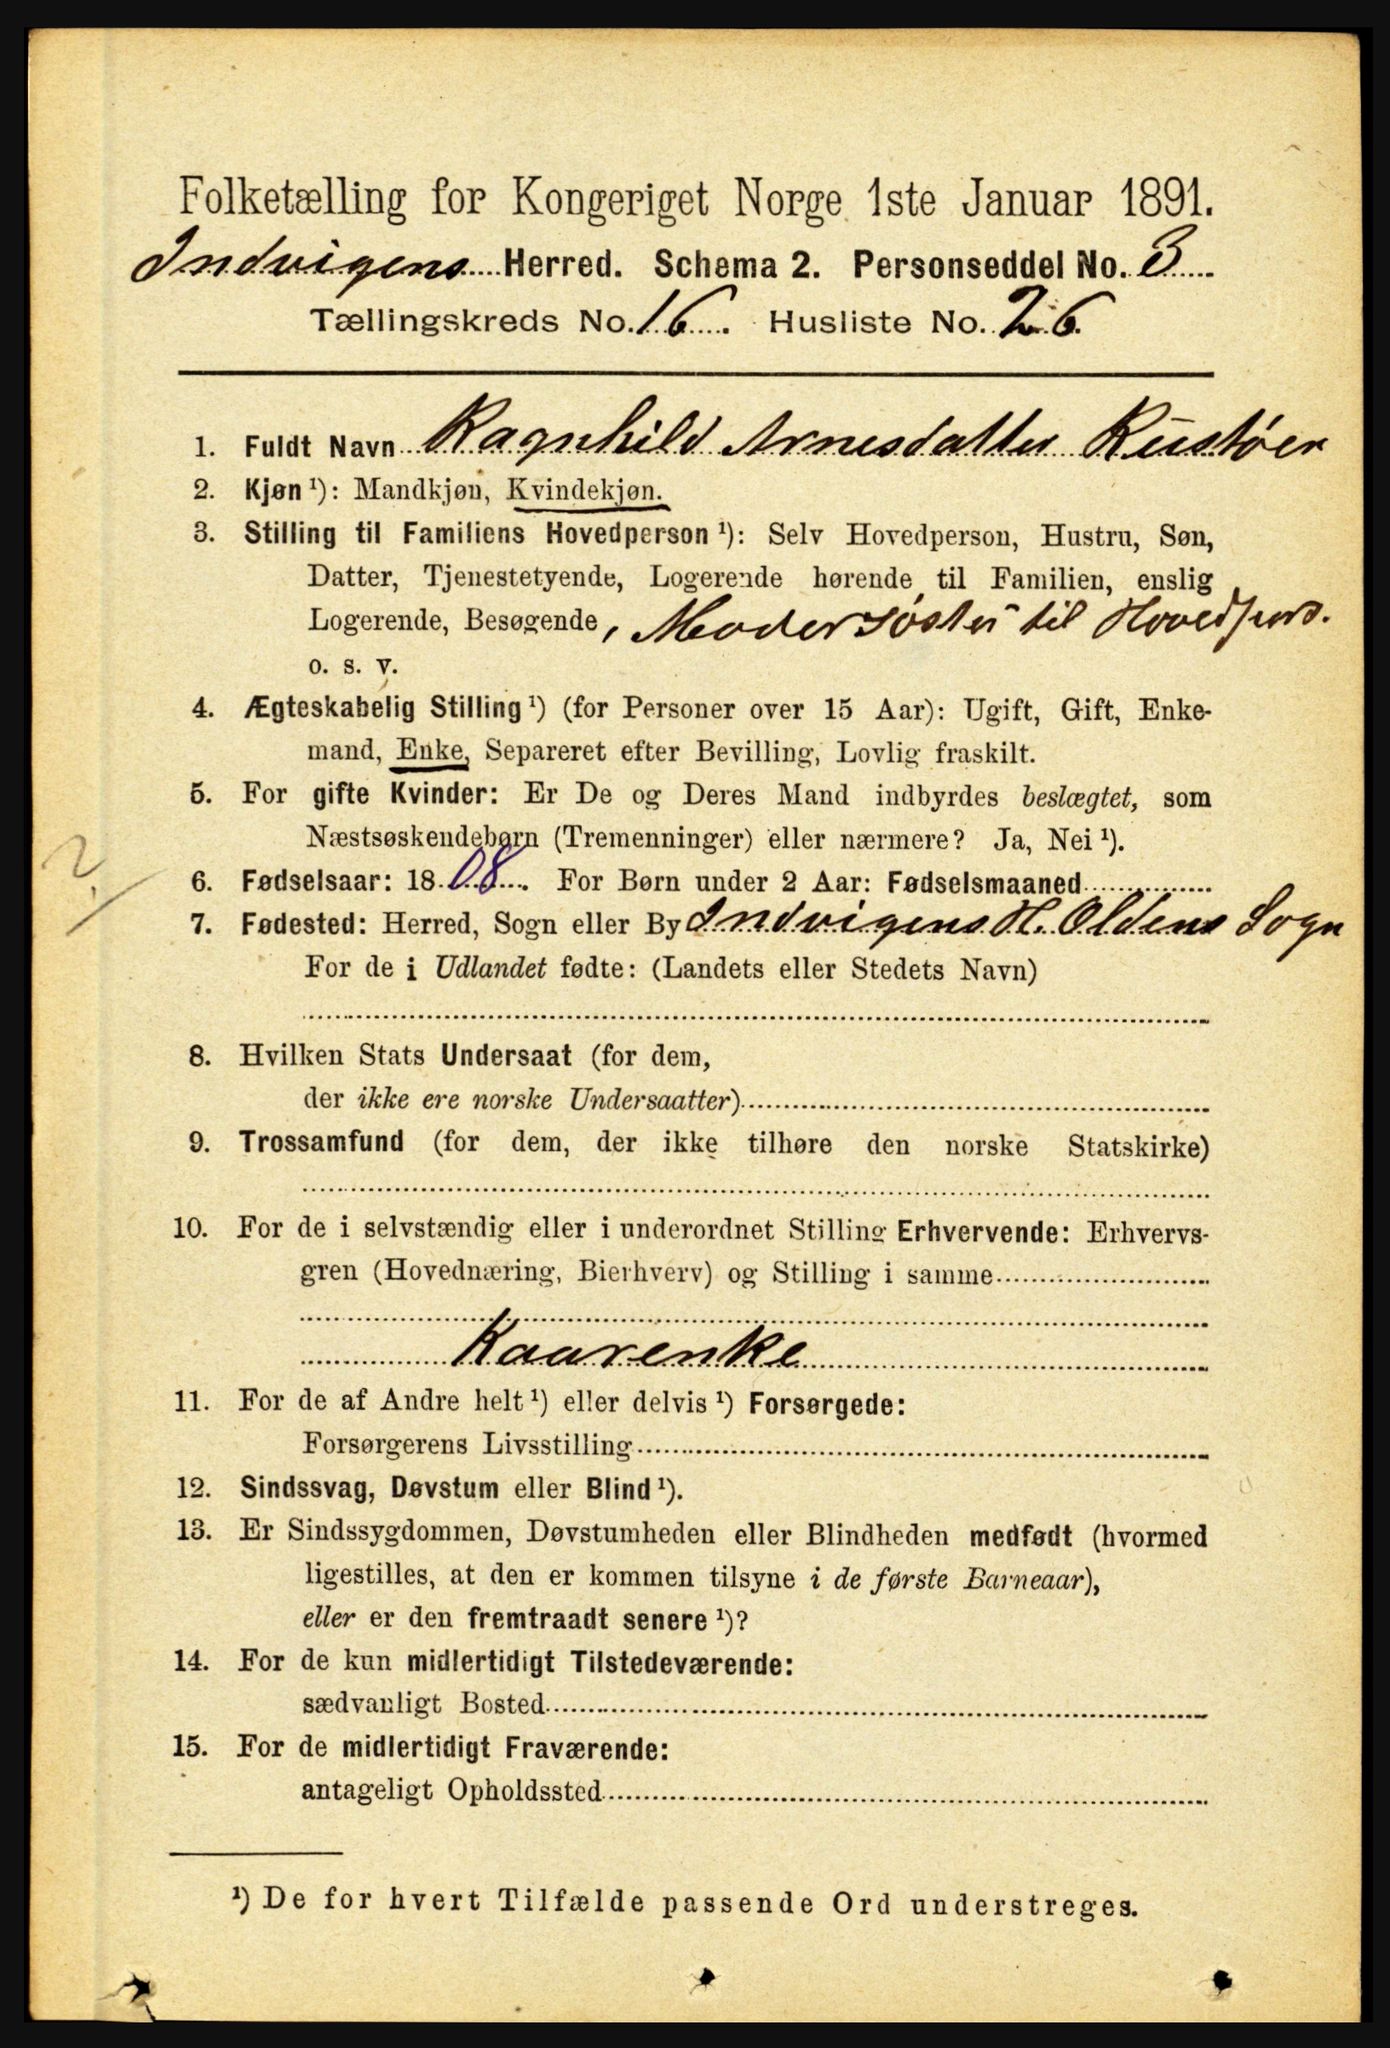 Folketælling for Kongeriget Norge 1ste Januar 1891.
Indvigens Herred. Schema 2. Personseddel No. 3
Tællingskreds No. 16. Husliste No. 26.
1. Fuldt Navn Ragnhild Arnesdatter Rustøen
2. Kjøn ¹): Mandkjøn, Kvindekjøn.
3. Stilling til Familiens Hovedperson ¹): Selv Hovedperson, Hustru, Søn,
Datter, Tjenestetyende, Logerende hørende til Familien, enslig
Logerende, Besøgende, Modersøster til Hovedpers.
o. s. v.
4. Ægteskabelig Stilling ¹) (for Personer over 15 Aar): Ugift, Gift, Enke-
mand, Enke, Separeret efter Bevilling, Lovlig fraskilt.
5. For gifte Kvinder: Er De og Deres Mand indbyrdes beslægtet, som
Næstsøskendebørn (Tremenninger) eller nærmere? Ja, Nei ¹).
2/
6. Fødselsaar: 1808. For Børn under 2 Aar: Fødselsmaaned
7. Fødested: Herred, Sogn eller By Indvigens H. Oldens Sogn
For de i Udlandet fødte: (Landets eller Stedets Navn)
8. Hvilken Stats Undersaat (for dem,
der ikke ere norske Undersaatter)
9. Trossamfund (for dem, der ikke tilhøre den norske Statskirke)
10. For de i selvstændig eller i underordnet Stilling Erhvervende: Erhvervs-
gren (Hovednæring, Bierhverv) og Stilling i samme
Kaarenke
11. For de af Andre helt ¹) eller delvis ¹) Forsørgede:
Forsørgerens Livsstilling
12. Sindssvag, Døvstum eller Blind ¹).
13. Er Sindssygdommen, Døvstumheden eller Blindheden medfødt (hvormed
ligestilles, at den er kommen tilsyne i de første Barneaar),
eller er den fremtraadt senere ¹)?
14. For de kun midlertidigt Tilstedeværende:
sædvanligt Bosted
15. For de midlertidigt Fraværende:
antageligt Opholdssted
¹) De for hvert Tilfælde passende Ord understreges.